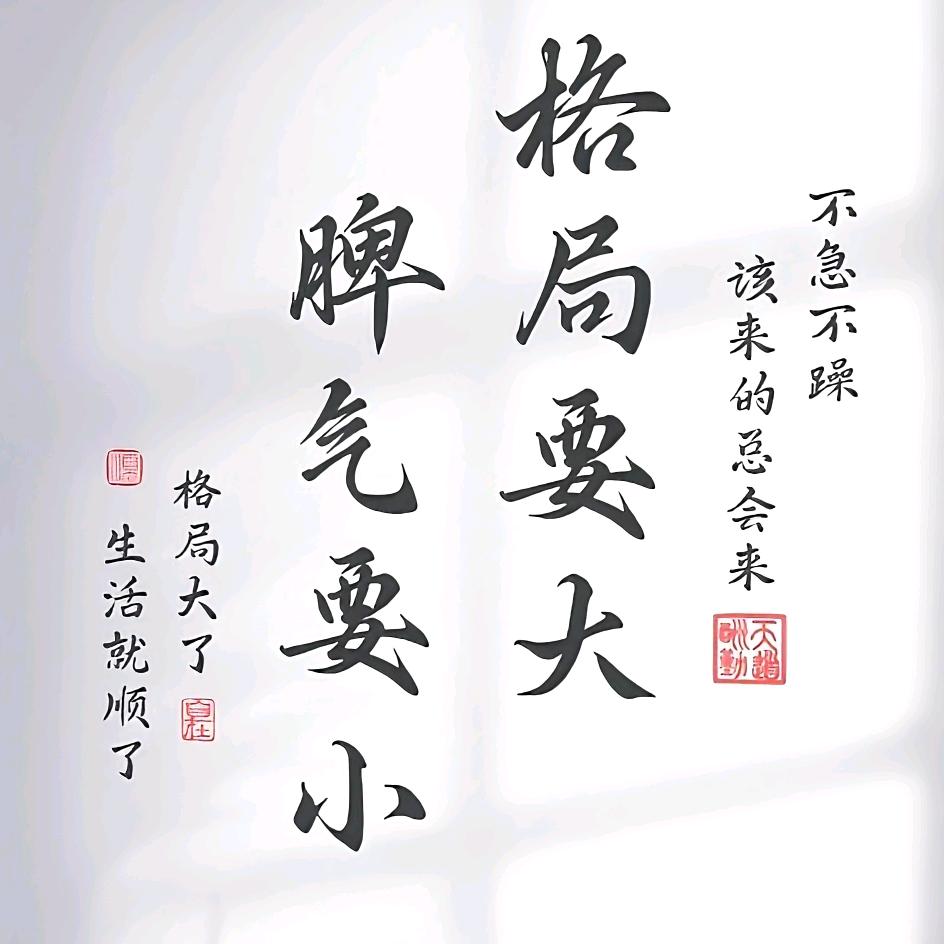 不急不躁
该来的总会来
天道酬勤
格局要大
脾气要小
格局大了
生活就顺了